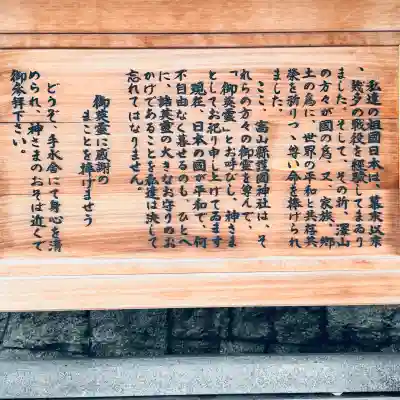 私達の祖国日本は、幕末以来
、幾多の戦役を経験してまゐり
ました。そして、その折、澤山
の方々が国の為、又、家族、郷
土の為に、世界の平和と共存共
榮を祈りつゝ尊い命を捧げられ
ました。
ここ、富山縣護國神社は、そ
れらの方々の御霊を尊んで、
「御英霊」とお呼びし、神さま
としてお祀り申し上げてゐます
現在、日本の國が平和で、何
不自由なく暮せるのも、ひとへ
に、諸英霊の大きなお守りのお
かげであることを私達は決して
忘れてはなりません。
御英霊に感謝の
まことを捧げませう
どうぞ、手水舎にて身心を清
められ、神さまのおそば近くで
御参拝下さい。